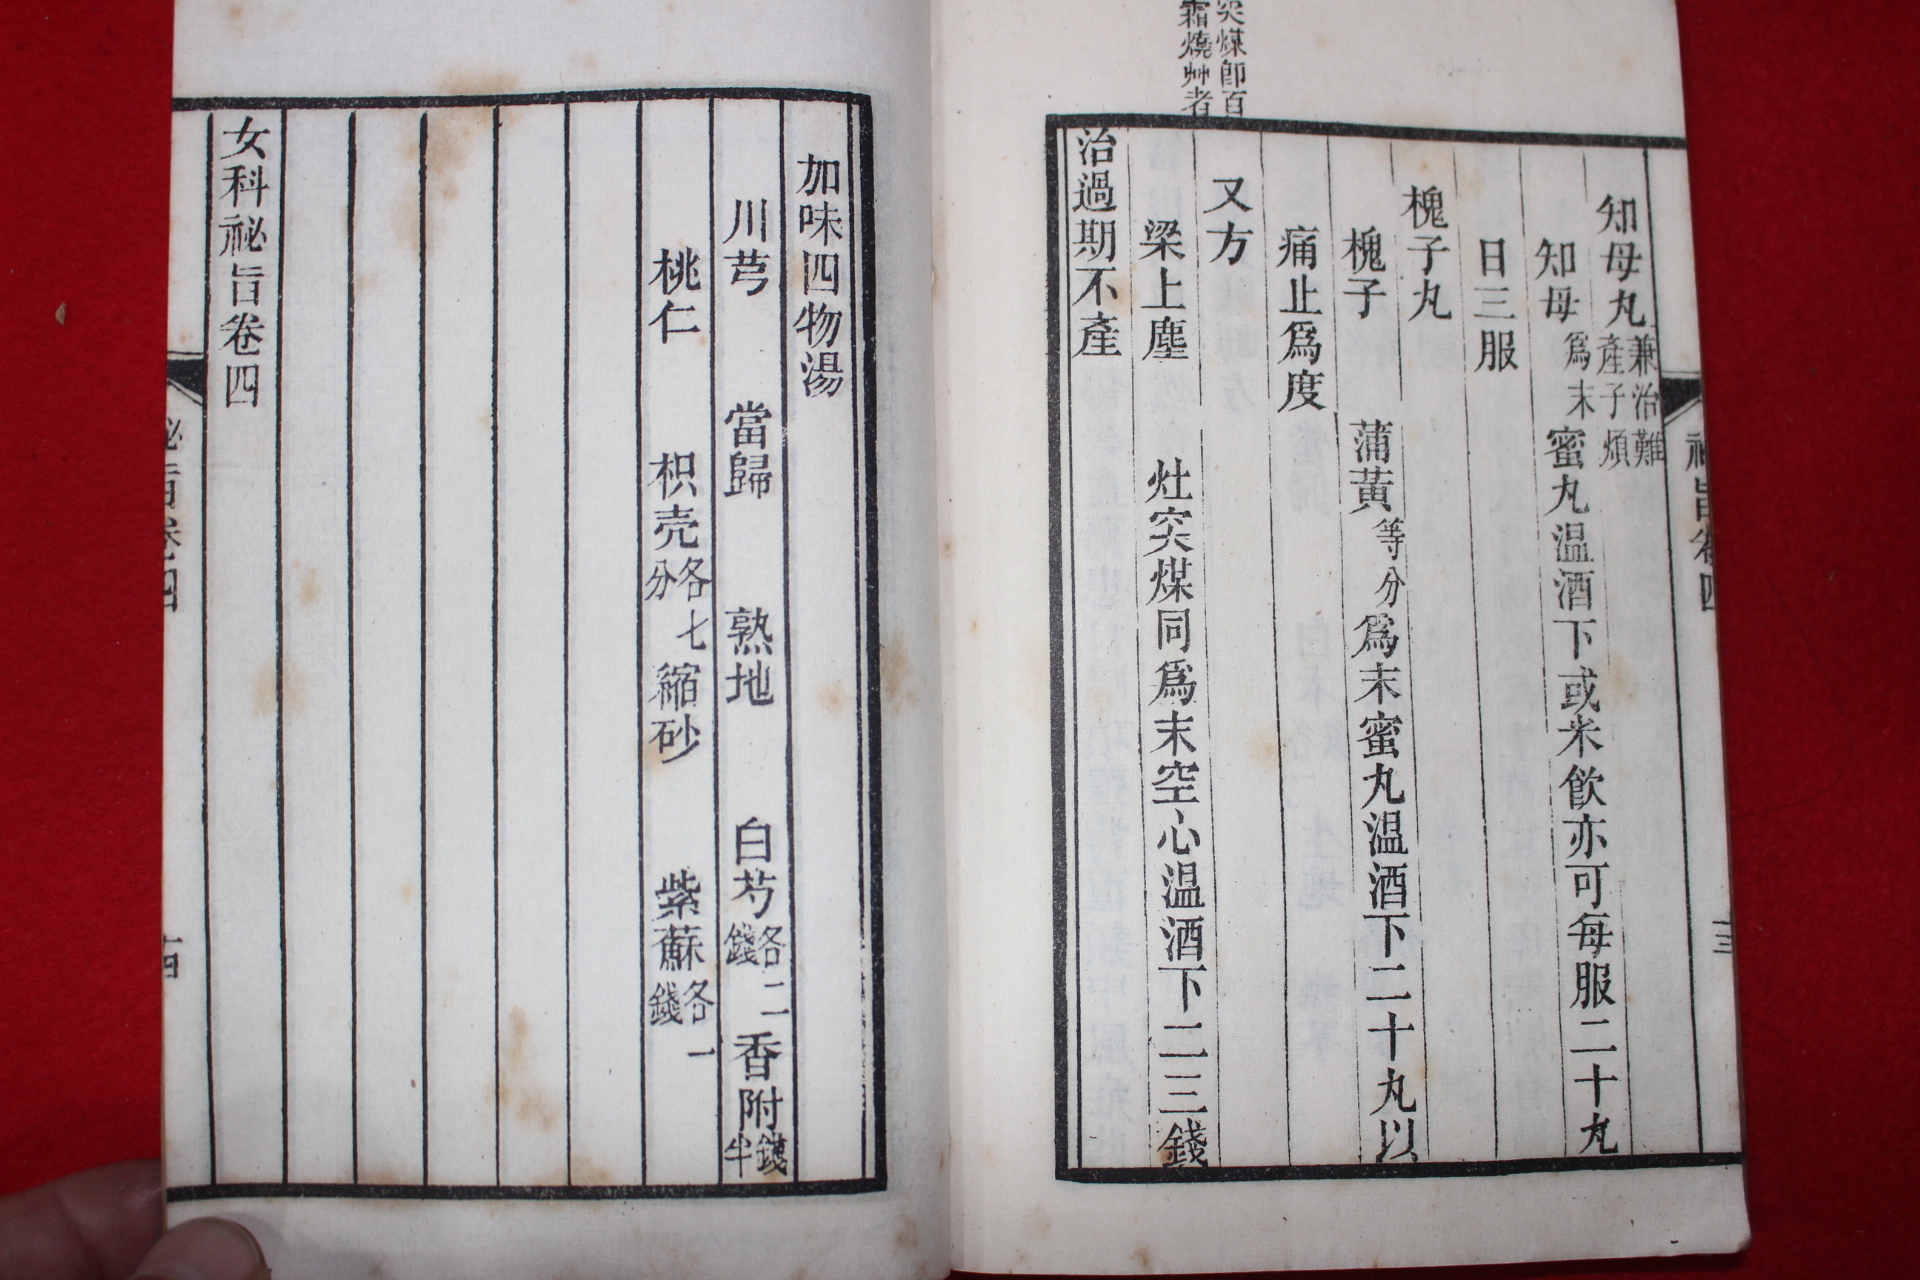 突煤即百
霜燒艸者
知母丸兼治難產子煩
知母為末蜜丸温酒下或米飲亦可每服二十丸
日三服
槐子丸
槐子 蒲黃等分為末蜜丸温酒下二十丸以
痛止為度
又方
梁上塵 灶突煤同為末空心温酒下二三錢
治過期不產
加味四物湯
川芎 當歸 熟地 白芍各二錢香附錢半
桃仁 枳壳各七分縮砂 紫蘇各一錢
女科祕旨卷四